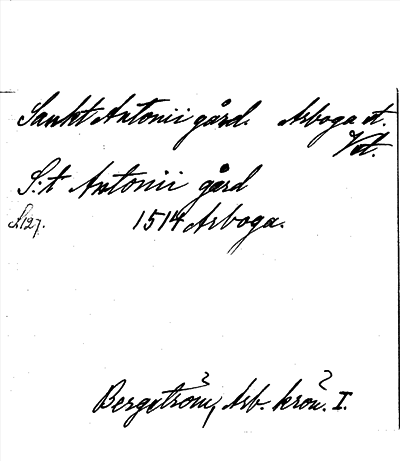 Sankt Antonii gård. Arboga st.
Vstm.
S:t Antonii gård
S. 127. 1514 Arboga.
Bergström, Arb. krön. I.